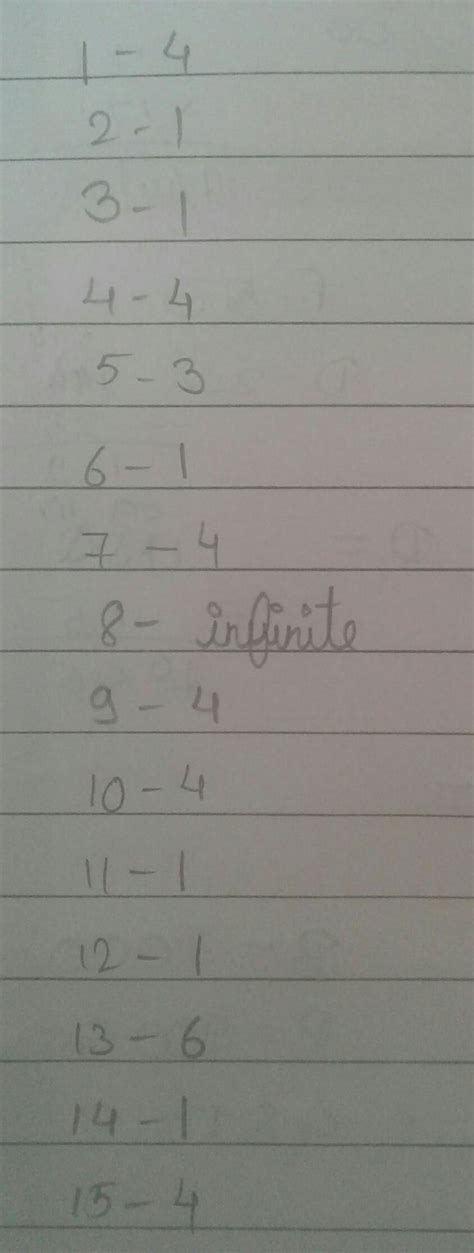 1 - 4
2 - 1
3 - 1
4 - 4
5 - 3
6 - 1
7 - 4
8 - infinite
9 - 4
10 - 4
11 - 1
12 - 1
13 - 6
14 - 1
15 - 4